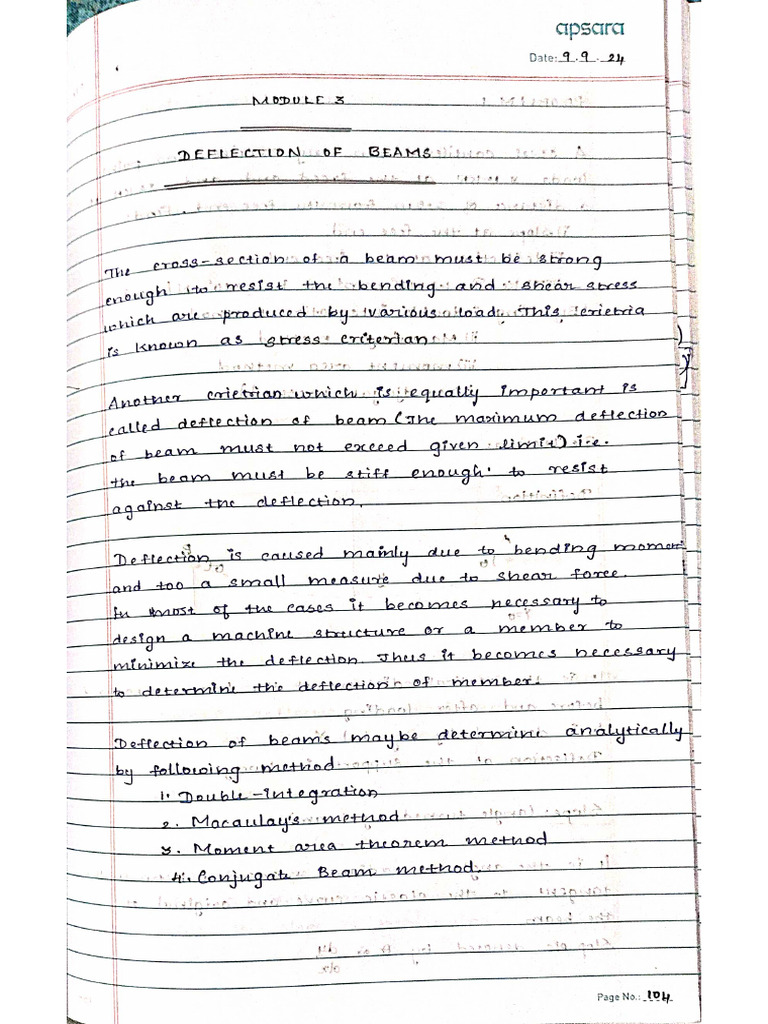 apsara
Date: 9.9.24
MODULE 3
DEFLECTION OF BEAMS
The cross-section of a beam must be strong
enough to resist the bending and shear stress
which are produced by various load. This crietria
is known as stress criterian.
Another crietrian which is equally important is
called deflection of beam (The maximum deflection
of beam must not exceed given limit) i.e.
the beam must be stiff enough to resist
against the deflection.
Deflection is caused mainly due to bending moment
and too a small measure due to shear force.
In most of the cases it becomes necessary to
design a machine structure or a member to
minimize the deflection. Thus it becomes necessary
to determine the deflection of member.
Deflection of beams maybe determine analytically
by following method
1. Double-integration
2. Macaulay's method
3. Moment area theorem method
4. Conjugate Beam method.
Page No.: 104